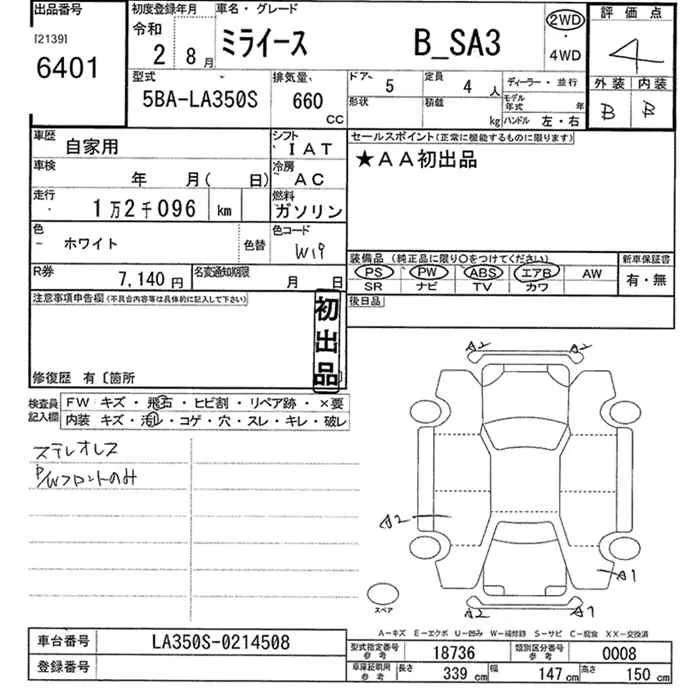 出品番号
[2139]
6401
初度登録年月
令和
2 8月
車名・グレード
ミライース B_SA3
2WD
4WD
評価点
4
外装 内装
B B
型式
5BA-LA350S
排気量、
660
CC
ドア・ 5
定員 4 人
形状
積載 kg
ディーラー・並行
モデル年式 年
ハンドル 左・右
車歴 自家用
シフト IAT
車検 年 月( 日)
冷房 AC
走行 1万2千096 km
燃料 ガソリン
色 ホワイト 色替
色コード W19
R券 7,140円
名変通知期限 月 日
セールスポイント(正常に機能するものに限ります)
★AA初出品
装備品(純正品に限り○をつけてください)
PS PW ABS エアB AW
SR ナビ TV カワ
新車保証書
有・無
後日品
注意事項申告欄(不具合内容等は具体的に記入して下さい)
初出品
修復歴 有〔箇所 〕
検査員記入欄
FW キズ・飛石・ヒビ割・リペア跡・×要
内装 キズ・汚れ・コゲ・穴・スレ・キレ・破レ
ステレオレス
P/Wフロントのみ
A2 A2
A2
A1
A2 A1
スペア
A-キズ E-エクボ U-凹み W-補修跡 S-サビ C-腐食 XX-交換済
車台番号 LA350S-0214508
登録番号
型式指定番号 参考 18736
類別区分番号 参考 0008
車庫証明用 参考 長さ 339 cm 幅 147 cm 高さ 150 cm